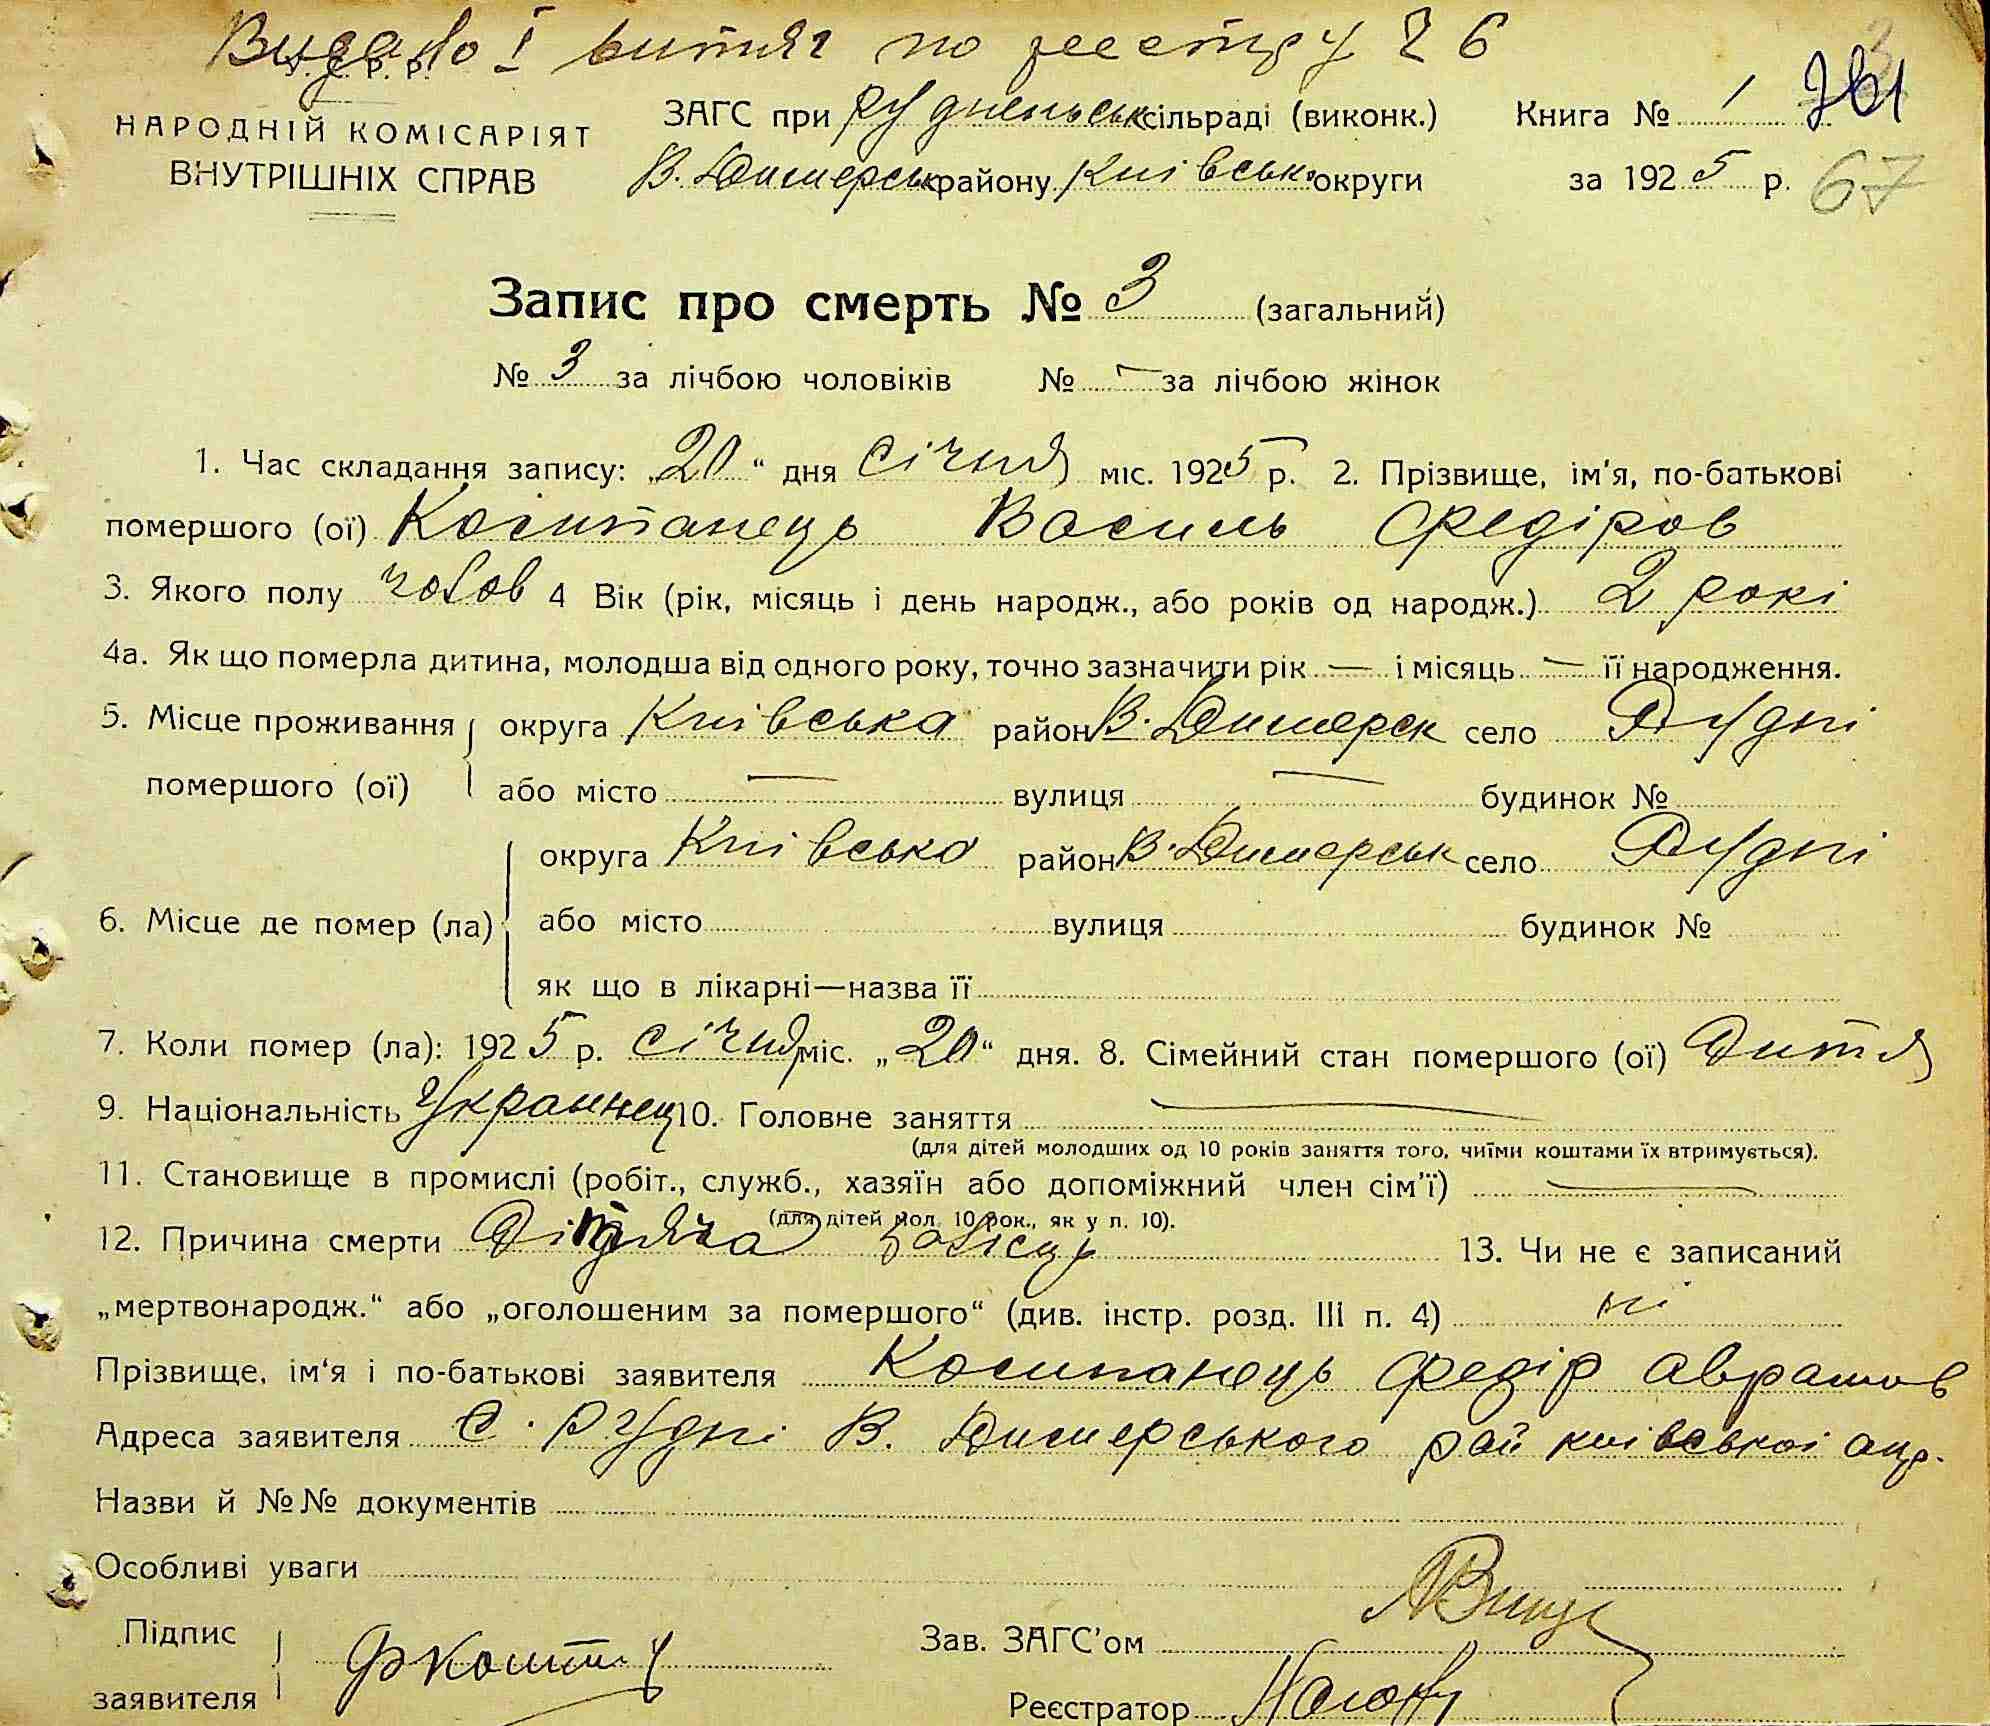 Видано 1 витяг по реєстру № 6
У. С. Р. Р.
НАРОДНІЙ КОМІСАРІЯТ
ВНУТРІШНІХ СПРАВ
ЗАГС при Рудненськ сільраді (виконк.)
В. Димерськ району Київсько округи
Книга № 1
за 1925 р.
67
Запис про смерть № 3 (загальний)
№ 3 за лічбою чоловіків № — за лічбою жінок
1. Час складання запису: „20“ дня січня міс. 1925 р. 2. Прізвище, ім'я, по-батькові
помершого (ої) Василь Федіров
3. Якого полу чолов 4 Вік (рік, місяць і день народж., або років од народж.) 2 рокі
4а. Як що померла дитина, молодша від одного року, точно зазначити рік — і місяць — її народження.
5. Місце проживання помершого (ої) округа Київська район В. Димерск село Рудні
або місто — вулиця — будинок №
6. Місце де помер (ла) округа Київсько район В. Димерськ село Рудні
або місто вулиця будинок №
як що в лікарні—назва її
7. Коли помер (ла): 1925 р. січня міс. „20“ дня. 8. Сімейний стан помершого (ої) Дитя
9. Національність Украинец 10. Головне заняття —
(для дітей молодших од 10 років заняття того, чиїми коштами їх втримується).
11. Становище в промислі (робіт., служб., хазяїн або допоміжний член сім'ї) —
(для дітей мол. 10 рок., як у п. 10).
12. Причина смерти Дітяча 13. Чи не є записаний
„мертвонародж.“ або „оголошеним за помершого“ (див. інстр. розд. III п. 4) ні
Прізвище, ім'я і по-батькові заявителя Федір Аврамов
Адреса заявителя С. Рудні В. Димерського рай київської окр.
Назви й №№ документів
Особливі уваги
Підпис заявителя
Зав. ЗАГС'ом
Реєстратор